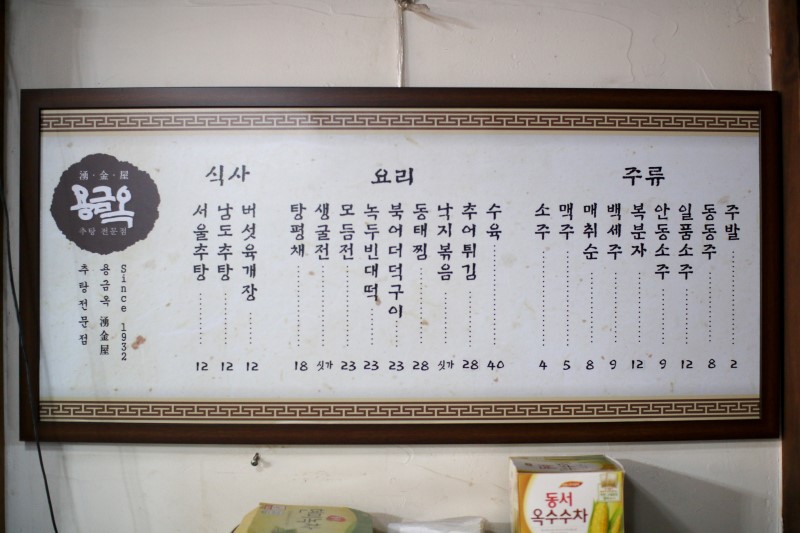 湧·金·屋
용금옥
추탕 전문점
Since 1932
용금옥 湧金屋
추탕전문점
식사
서울추탕 12
남도추탕 12
버섯육개장 12
요리
탕평채 18
생굴전 싯가
모듬전 23
녹두빈대떡 23
북어더덕구이 23
동태찜 28
낙지볶음 싯가
추어튀김 28
수육 40
주류
소주 4
맥주 5
매취순 8
백세주 9
복분자 12
안동소주 9
일품소주 12
동동주 8
주발 2
동서
옥수수차